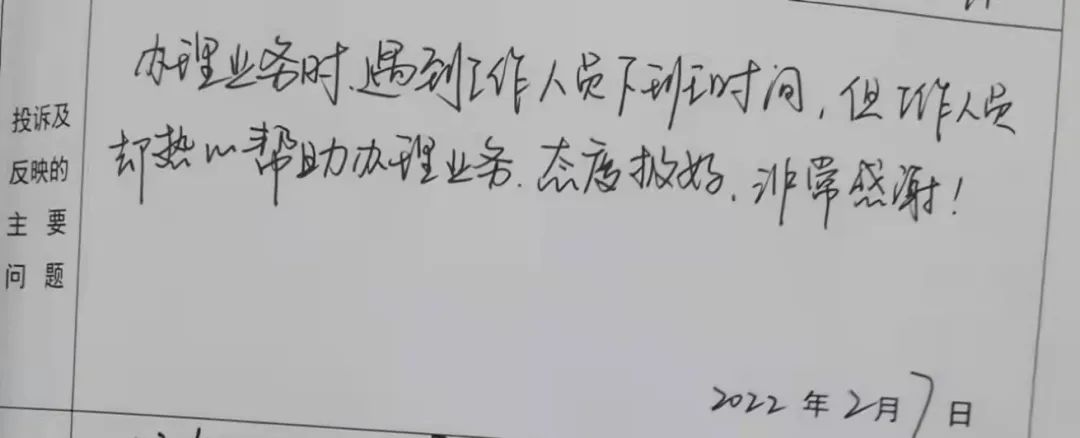 办理业务时、遇到工作人员下班时间，但工作人员
却热心帮助办理业务.态度极好、非常感谢！
投诉及
反映的
主要
问题
2022年2月7日